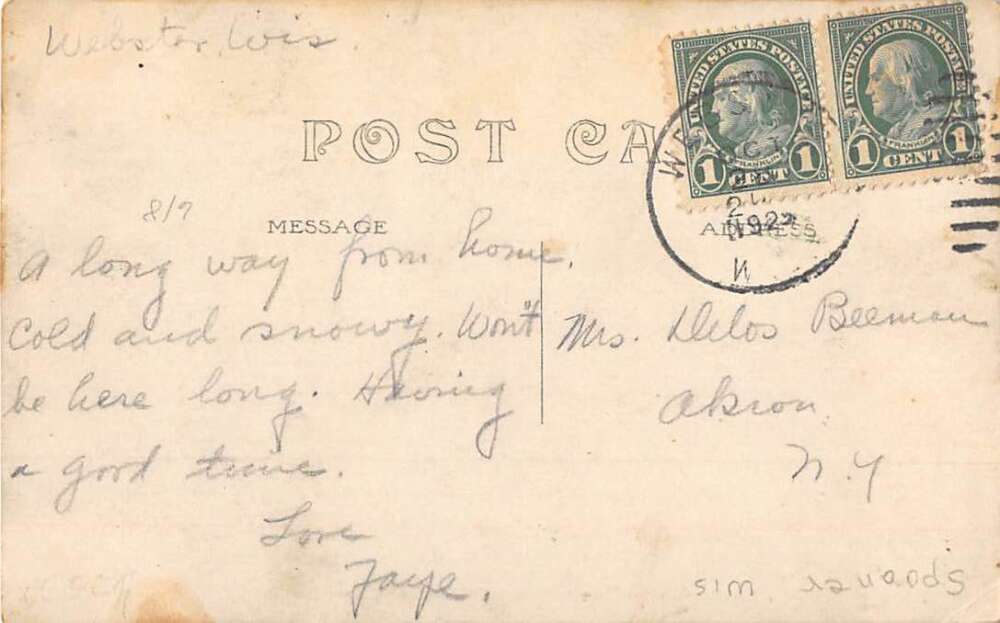 Webster, Wis.
UNITED STATES POSTAGE
FRANKLIN
1 CENT 1
UNITED STATES POSTAGE
FRANKLIN
1 CENT 1
POST CA
8/9
MESSAGE
ADDRESS
A long way from home.
Cold and snowy. Won't
be here long. Having
a good time.
Love
Faye.
Mrs. Delos Beeman
Akron
N.Y
Spooner Wis